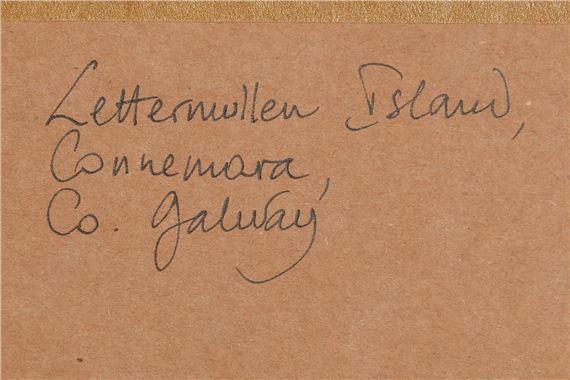 Lettermullen Island,
Connemara,
Co. Galway